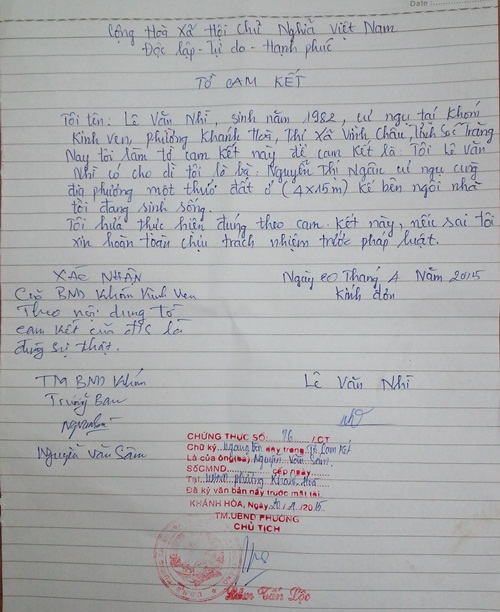 Date :
Cộng Hoà Xã Hội Chủ Nghĩa Việt Nam
Độc lập - Tự do - Hạnh phúc
TỜ CAM KẾT
Tôi tên : Lê Văn Nhĩ, sinh năm 1982, cư ngụ tại Khóm
Kinh Ven, phường Khánh Hoà, Thị Xã Vĩnh Châu, Tỉnh Sóc Trăng
Nay tôi làm tờ cam kết này để cam kết là : Tôi Lê Văn
Nhĩ có cho dì tôi là bà : Nguyễn Thị Ngân cư ngụ cùng
địa phương một thước đất ở (4x15m) kế bên ngôi nhà
tôi đang sinh sống.
Tôi hứa thực hiện đúng theo cam kết này, nếu sai tôi
xin hoàn toàn chịu trách nhiệm trước pháp luật.
XÁC NHẬN
Của BND Khóm Kinh Ven
Theo nội dung tờ
cam kết của đ/s là
đúng sự thật.
Ngày 20 Tháng 4 Năm 2015
Kính đơn
TM BND Khóm
Trưởng Ban
Nguyễn Văn Sâm
Lê Văn Nhĩ
CHỨNG THỰC SỐ: 96 /CT
Chữ ký ngang bên này trong Tờ Cam Kết
Là của ông(bà) Nguyễn Văn Sâm
SốCMND cấp ngày
Tại UBND phường Khánh Hòa
Đã ký văn bản này trước mặt tôi
KHÁNH HÒA, Ngày 20/4/2015
TM.UBND PHƯỜNG
CHỦ TỊCH
Tấn Lộc